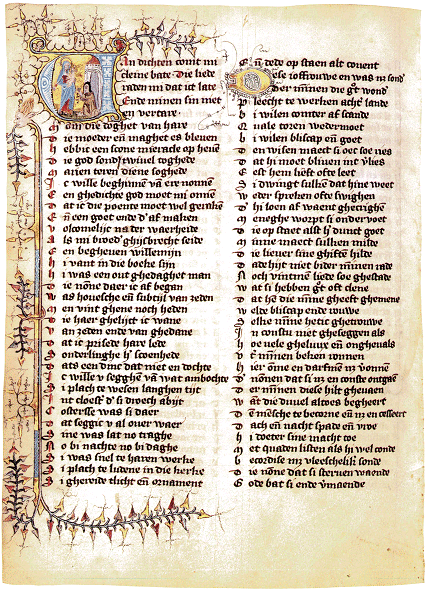 Van dichten comt mi
cleine bate · Die liede
raden mi dat ict late
Ende minen sin niet
en vertare
M om die doghet van hare
D ie moeder eñ maghet es bleuen
H ebbic een scone mieracle op heuē
D ie god sonder twiuel toghede
M arien teren diene soghede
I c wille beghinnen vā ere nonnē
E n ghedichte god moet mi onnē
D at ic die poente moet wel geraken
E ñ een goet ende daer af maken
V olcomelijc na der waerheide
A ls mi broeder ghijsbrecht seide
E en begheuen willemijn
H i vant in die boeke sijn
H i was een out ghedaghet man
D ie nōne daer ic af began
W as houesche eñ subtijl van zeden
M en vint ghene noch heden
D ie haer ghelijct ic wane
V an zeden ende van ghedane
D at ic prisede hare lede
S onderlinghe haer scoenhede
D ats een dinc dat niet en dochte
I c wille v segghē vā wat ambochte
S i plach te wesen langhen tijt
I nt cloester daer si droech abijt
C osterse was si daer
D at seggic v al ouer waer
S ine was lat no traghe
N o bi nachte no bi daghe
S i was snel te haren werke
S i plach te ludene in die kerke
S i ghereide tlicht eñ ornament
E ñ dede op staen alt couent
Dese ioffrouwe en was niet sonder
Der minnen die groet wonder
P leecht te werken achter lande
B i wilen comter af scande
Q uale toren wedermoet
B i wilen bliscap eñ goet
D en wisen maect si oec soe ries
D at hi moet bliuen int vlies
E est hem lieft ofte leet
S i dwingt sulken dat hine weet
W eder spreken ofte swighen
D aer hi loen af waent ghecrighen
M eneghe worpt si onder voet
D ie op staet alst haer dunct goet
M inne maect sulken milde
D ie lieuer sine ghiften hilde
D ade hijt niet bider minnen rade
N och vintmen liede soe ghestade
W at si hebben groet oft clene
D at hen die minne gheeft ghemene
W elde bliscap ende rouwe
S elke minne hetic ghetrouwe
I n constu niet gheseggen als
H oe vele gheluux eñ onghevals
V ter minnen beken ronnen
H ier omme en darfmen niet vonnen
D er nonnen dat si niet en conste ontgaen
D er minnen diese hilt gheuaen
W ant die duuel altoes begheert
D en mensche te becorne eñ niet en cesseert
D ach eñ nacht spade eñ vroe
H i doeter sine macht toe
M et quaden listen als hi wel conde
B ecordise met vleescheliker sonde
D ie nōne dat si steruen waende
G ode bat si ende vermaende